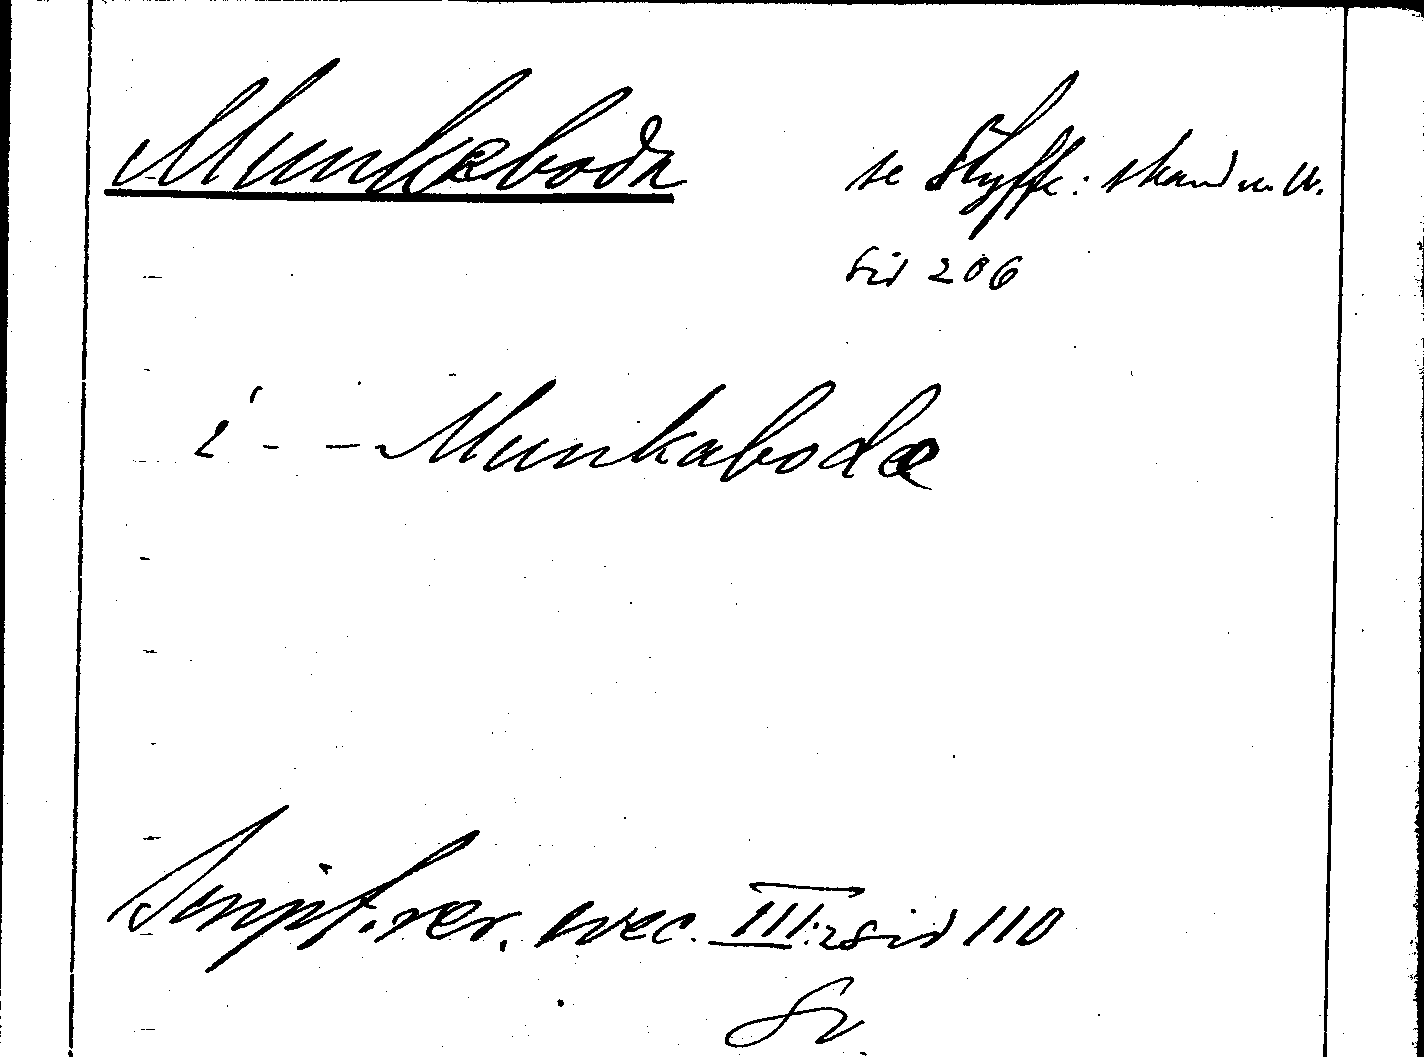 Munkæboda se Styffe: skand u. U.
sid 206
i - - Munkabodæ
Script. rer. svec. III:2 sid 110
Sv.